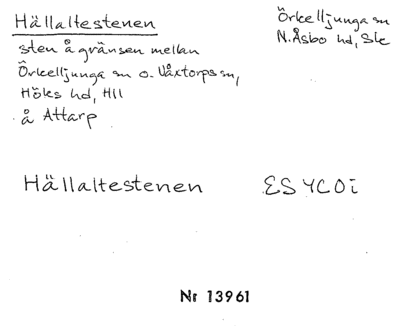 Hällaltestenen
Örkelljunga sn
N. Åsbo hd, Sk
sten å gränsen mellan
Örkelljunga sn o. Våxtorps sn,
Höks hd, Hll
å Attarp
Hällaltestenen
Nr 13961